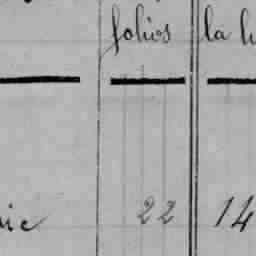 folios la
22 14